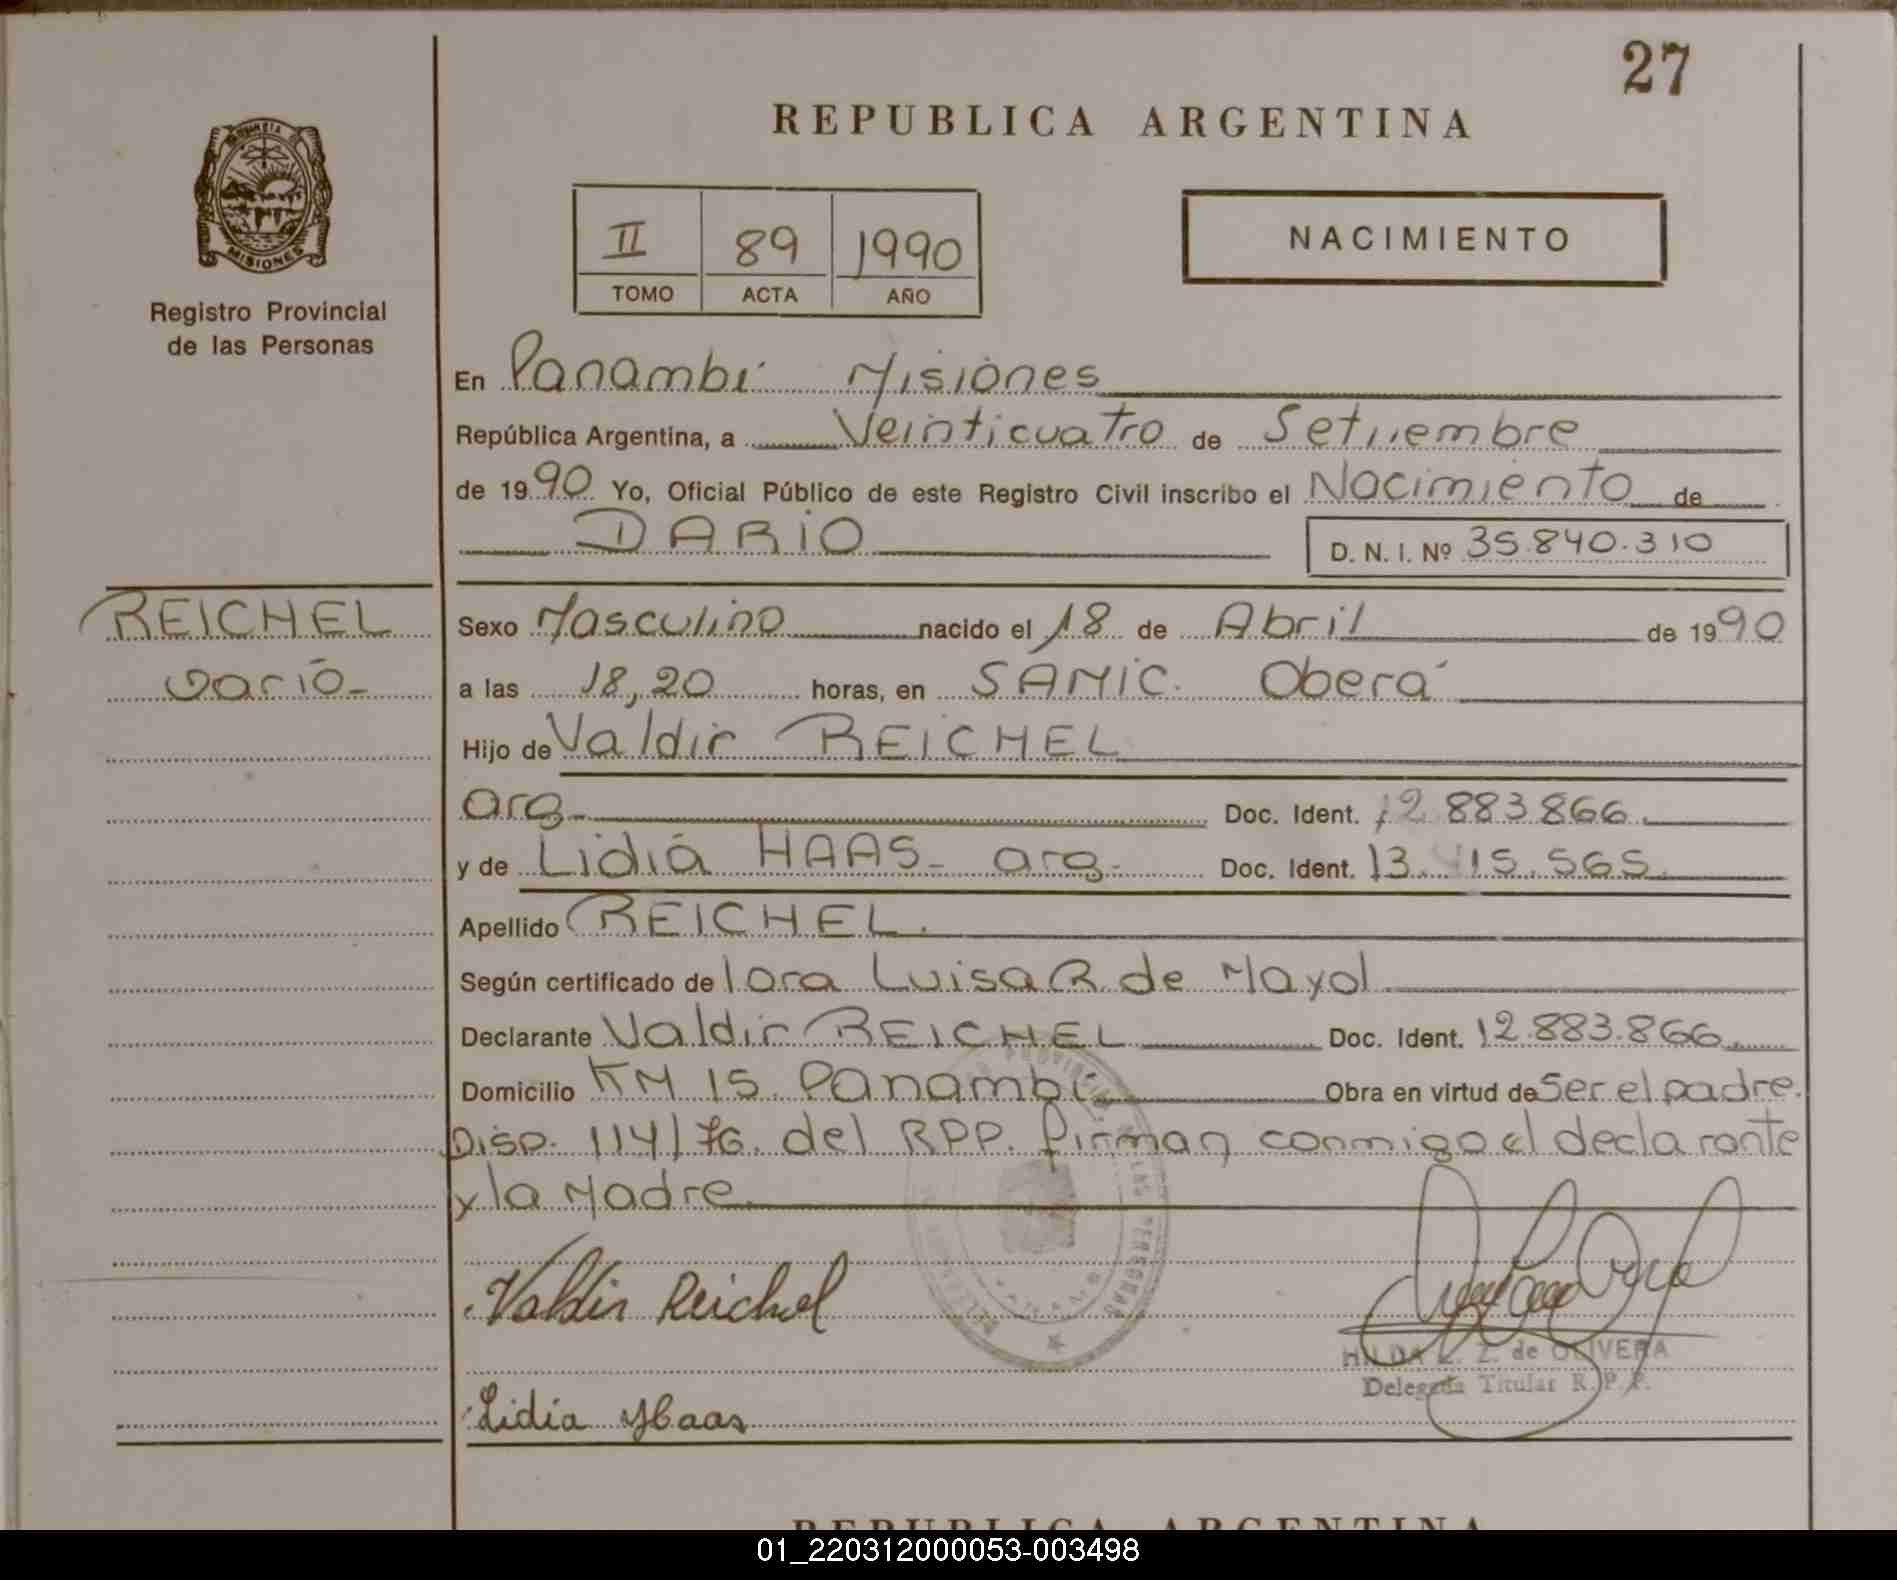 27
REPUBLICA ARGENTINA
PROVINCIA DE
MISIONES
Registro Provincial
de las Personas
II 89 1990
TOMO ACTA AÑO
NACIMIENTO
En Panambí Misiones
República Argentina, a Veinticuatro de Setiembre
de 1990 Yo, Oficial Público de este Registro Civil inscribo el Nacimiento de
DARIO D. N. I. Nº 35.840.310
REICHEL
Dario-
Sexo Masculino nacido el 18 de Abril de 1990
a las 18,20 horas, en SAMIC. Oberá
Hijo de Valdir REICHEL
arg- Doc. Ident. 12.883.866.
y de Lidia HAAS- arg- Doc. Ident. 13. 15.565.
Apellido REICHEL.
Según certificado de Iora Luisa R. de Mayol
Declarante Valdir REICHEL Doc. Ident. 12.883.866.
Domicilio KM 15. Panambí Obra en virtud de Ser el padre.
Disp. 114/76. del RPP. firman conmigo el declarante
y la Madre.
Valdir Reichel
HILDA Z. de OLIVERA
Delegada Titular R.P.P.
Lidia Haas
REPUBLICA ARGENTINA
01_220312000053-003498